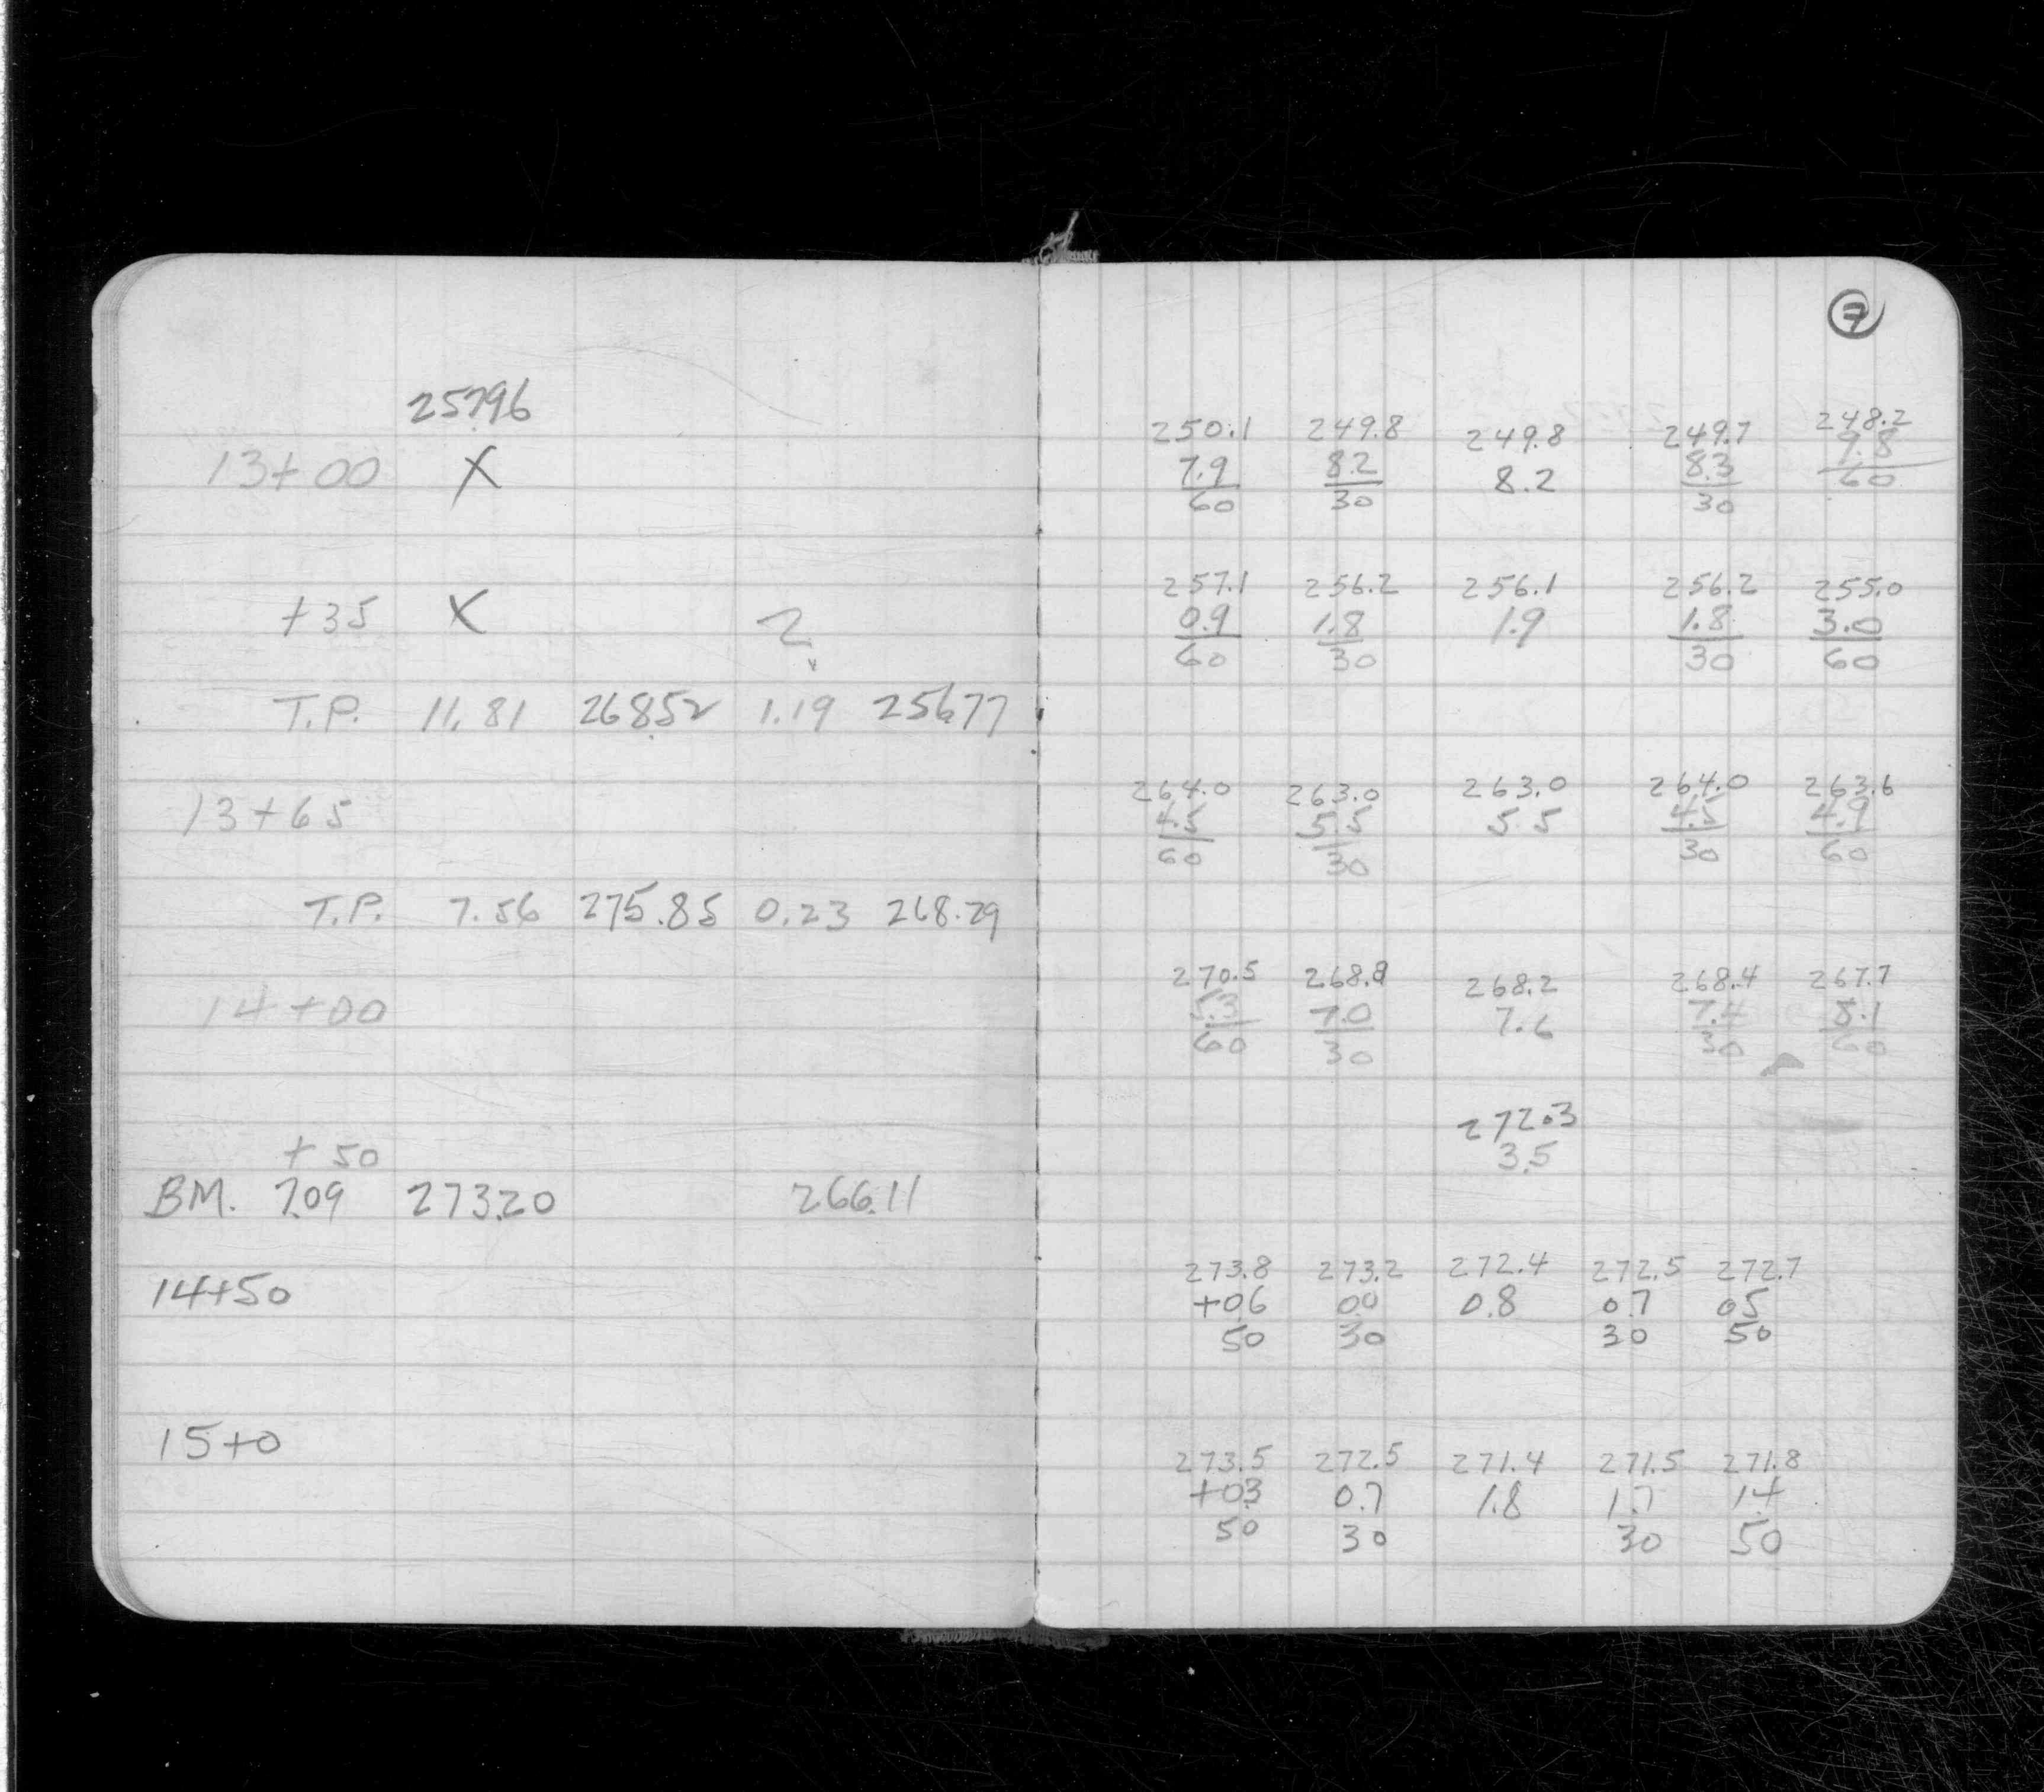 25796
13+00 X
+35 X 2
T.P. 11.81 268.52 1.19 256.77
13+65
T.P. 7.56 275.85 0.23 268.29
14+00
+50
BM. 7.09 273.20 266.11
14+50
15+0
7
250.1 249.8 249.8 249.7 248.2
7.9 8.2 8.2 8.3 9.8
60 30 30 60
257.1 256.2 256.1 256.2 255.0
0.9 1.8 1.9 1.8 3.0
60 30 30 60
264.0 263.0 263.0 264.0 263.6
4.5 5.5 5.5 4.5 4.9
60 30 30 60
270.5 268.8 268.2 268.4 267.7
5.3 7.0 7.6 7.4 8.1
60 30 30 60
272.3
3.5
273.8 273.2 272.4 272.5 272.7
+0.6 0.0 0.8 0.7 0.5
50 30 30 50
273.5 272.5 271.4 271.5 271.8
+0.3 0.7 1.8 1.7 1.4
50 30 30 50